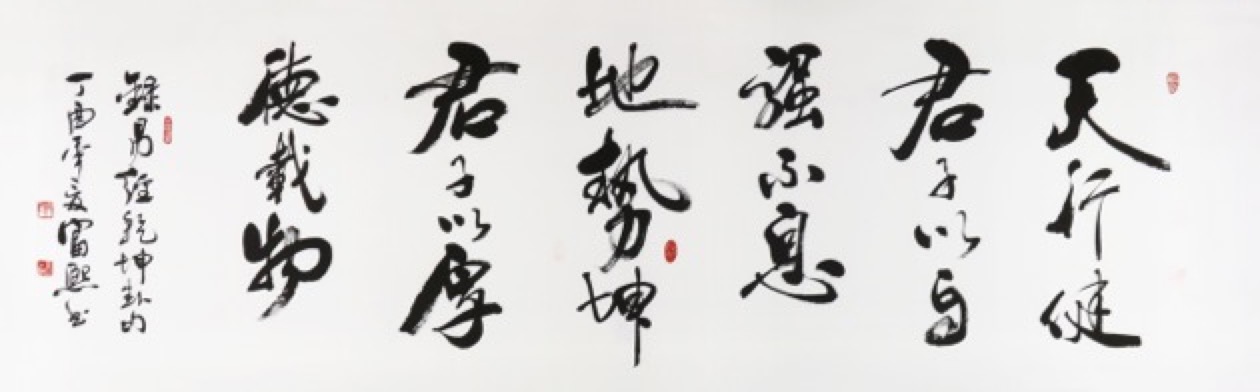 天行健
君子以自
强不息
地勢坤
君子以厚
德載物
錄易經乾坤卦句
丁酉年夏富熙書